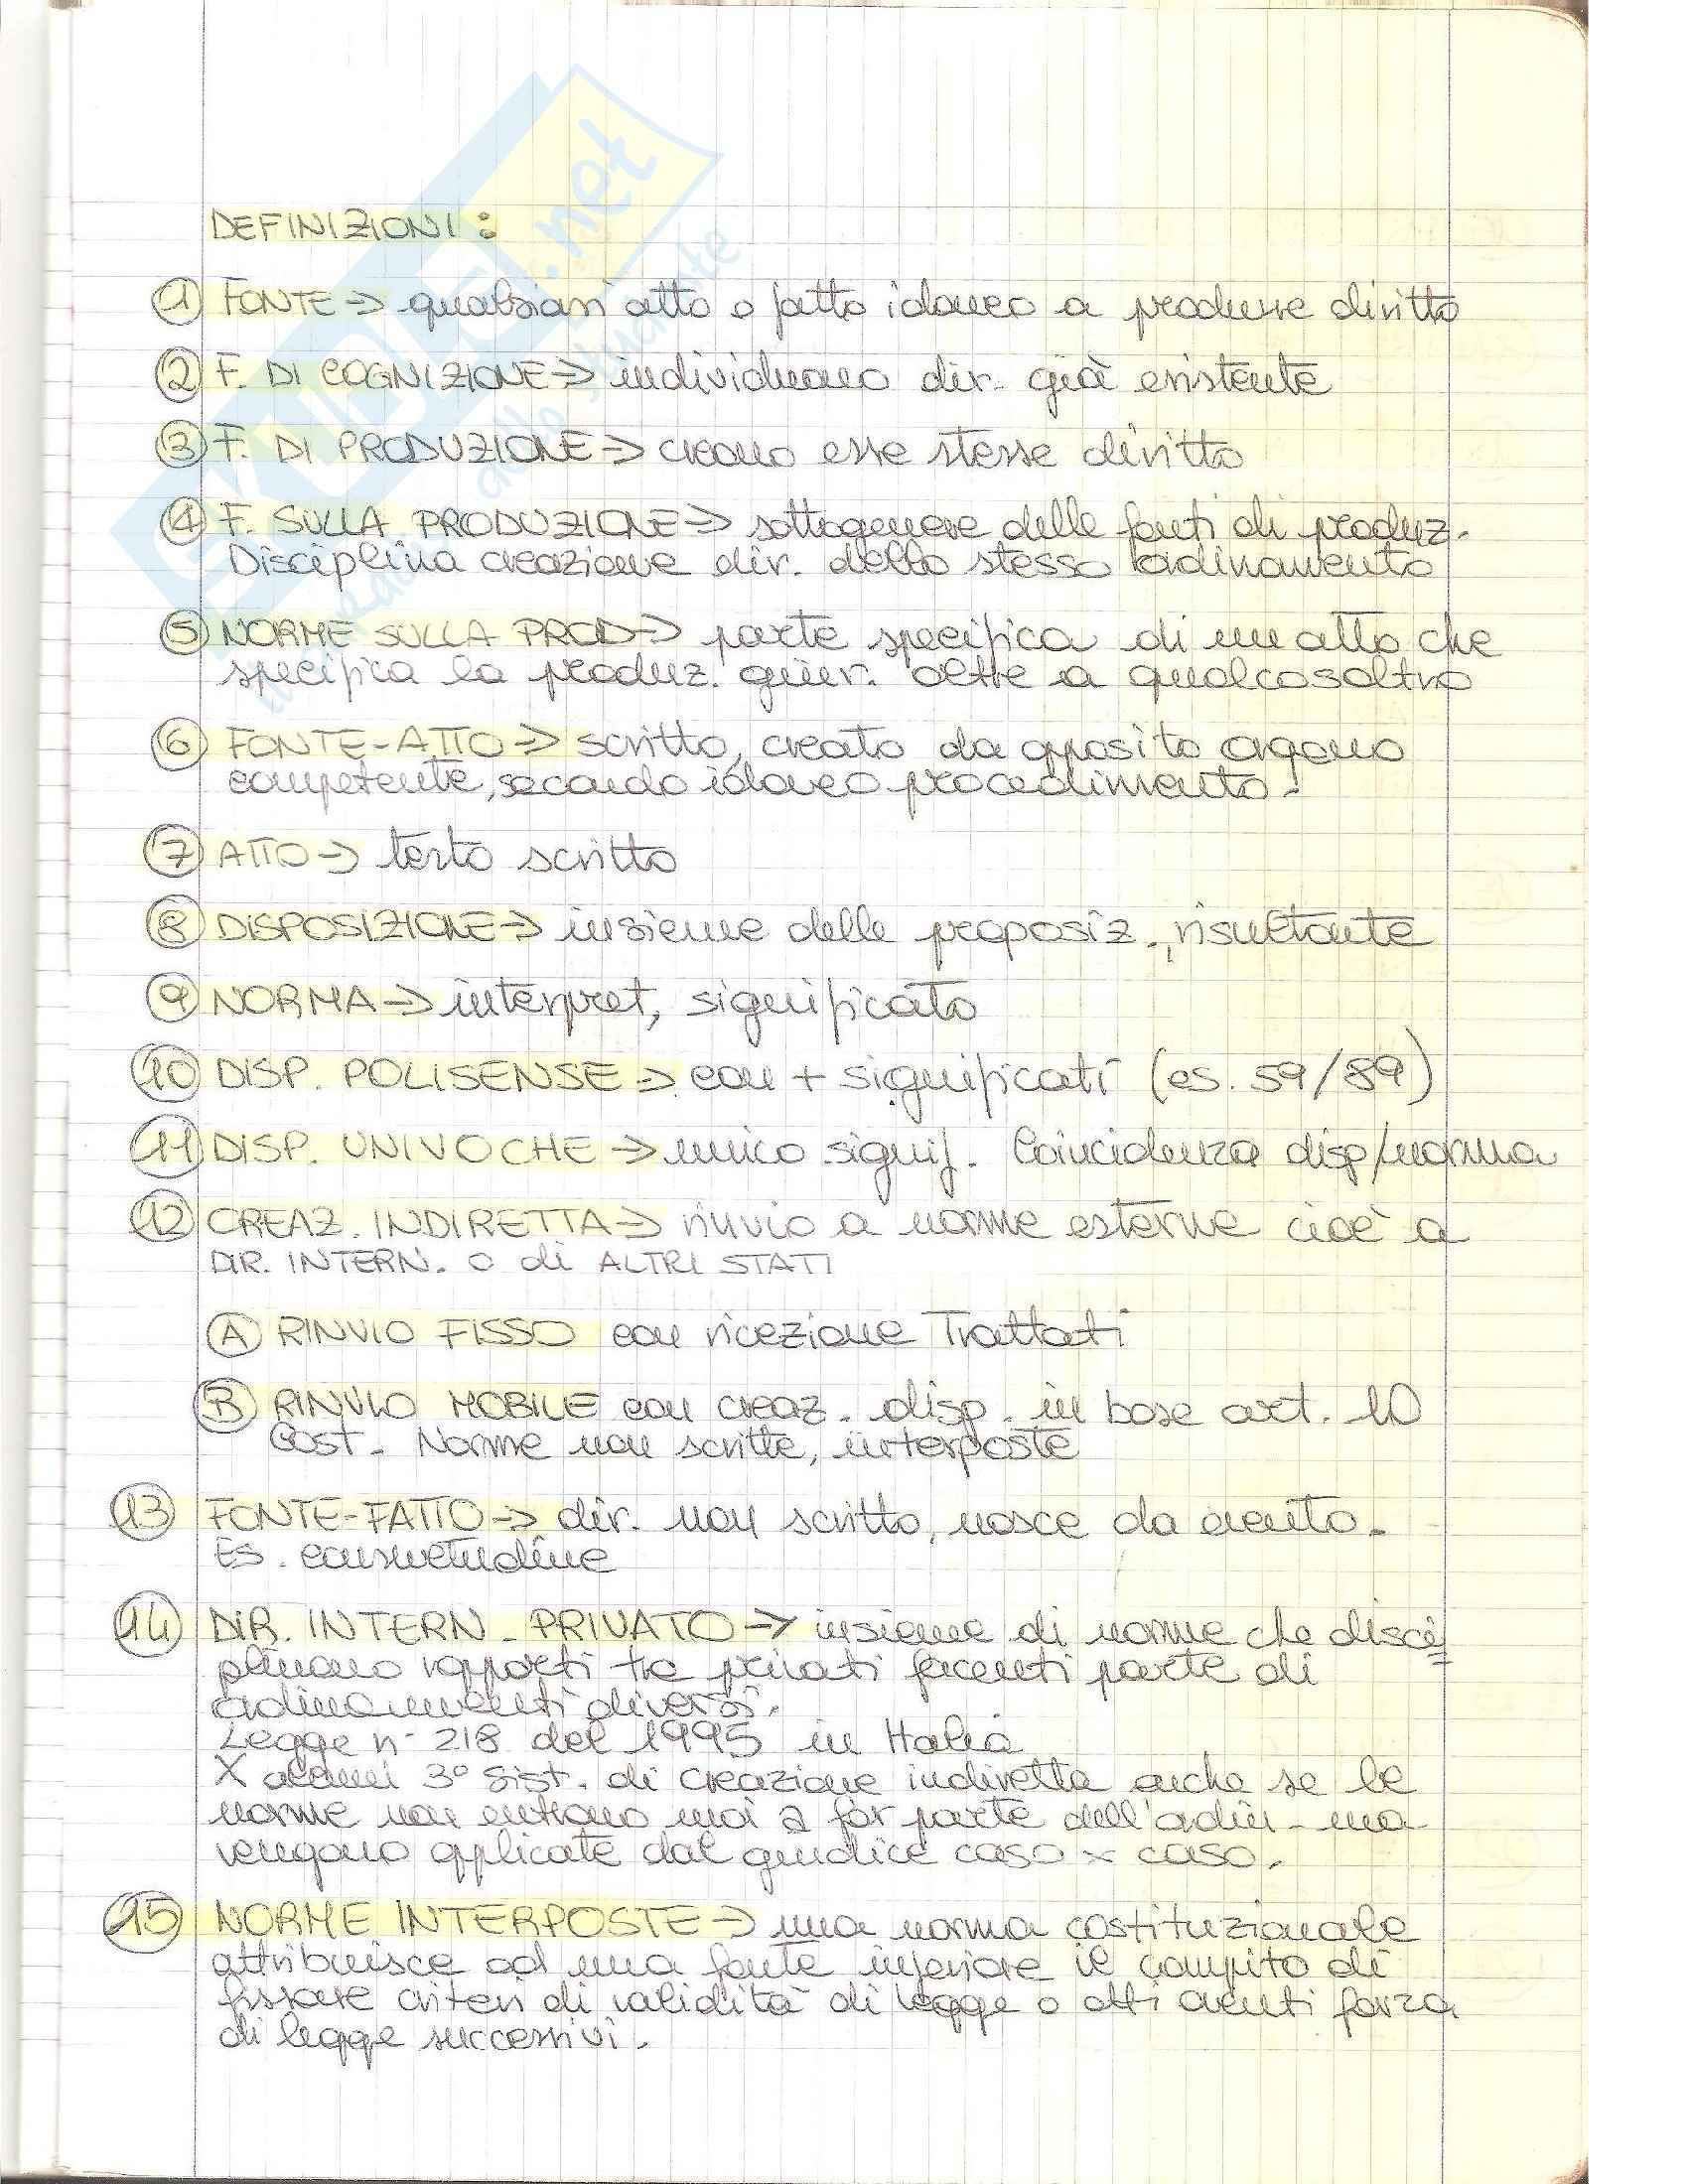 DEFINIZIONI:
1 FONTE → qualsiasi atto o fatto idoneo a produrre diritto
2 F. DI COGNIZIONE → individuano dir. già esistente
3 F. DI PRODUZIONE → creano esse stesse diritto
4 F. SULLA PRODUZIONE → sottogenere delle fonti di produz.
Disciplina creazione dir. dello stesso ordinamento
5 NORME SULLA PROD → parte specifica di un atto che
specifica la produz. giur. oltre a qualcosaltro
6 FONTE-ATTO → scritto, creato da apposito organo
competente, secondo idoneo procedimento.
7 ATTO → testo scritto
8 DISPOSIZIONE → insieme delle proposiz., risultante
9 NORMA → interpret, significato
10 DISP. POLISENSE → con + significati (es. 59/89)
11 DISP. UNIVOCHE → unico signif. Coincidenza disp/norma
12 CREAZ. INDIRETTA → rinvio a norme esterne cioè a
DIR. INTERN. o di ALTRI STATI
A RINVIO FISSO con ricezione Trattati
B RINVIO MOBILE con creaz. disp. in base art. 10
Cost. Norme non scritte, interposte
13 FONTE-FATTO → dir. non scritto, nasce da evento.
Es. consuetudine
14 DIR. INTERN. PRIVATO → insieme di norme che disci=
plinano rapporti tra privati facenti parte di
ordinamenti diversi.
Legge n. 218 del 1995 in Italia
X alcuni 3° sist. di creazione indiretta anche se le
norme non entrano mai a far parte dell'ordin. ma
vengono applicate dal giudice caso x caso.
15 NORME INTERPOSTE → una norma costituzionale
attribuisce ad una fonte inferiore il compito di
fissare criteri di validità di legge o atti aventi forza
di legge successivi.
.net